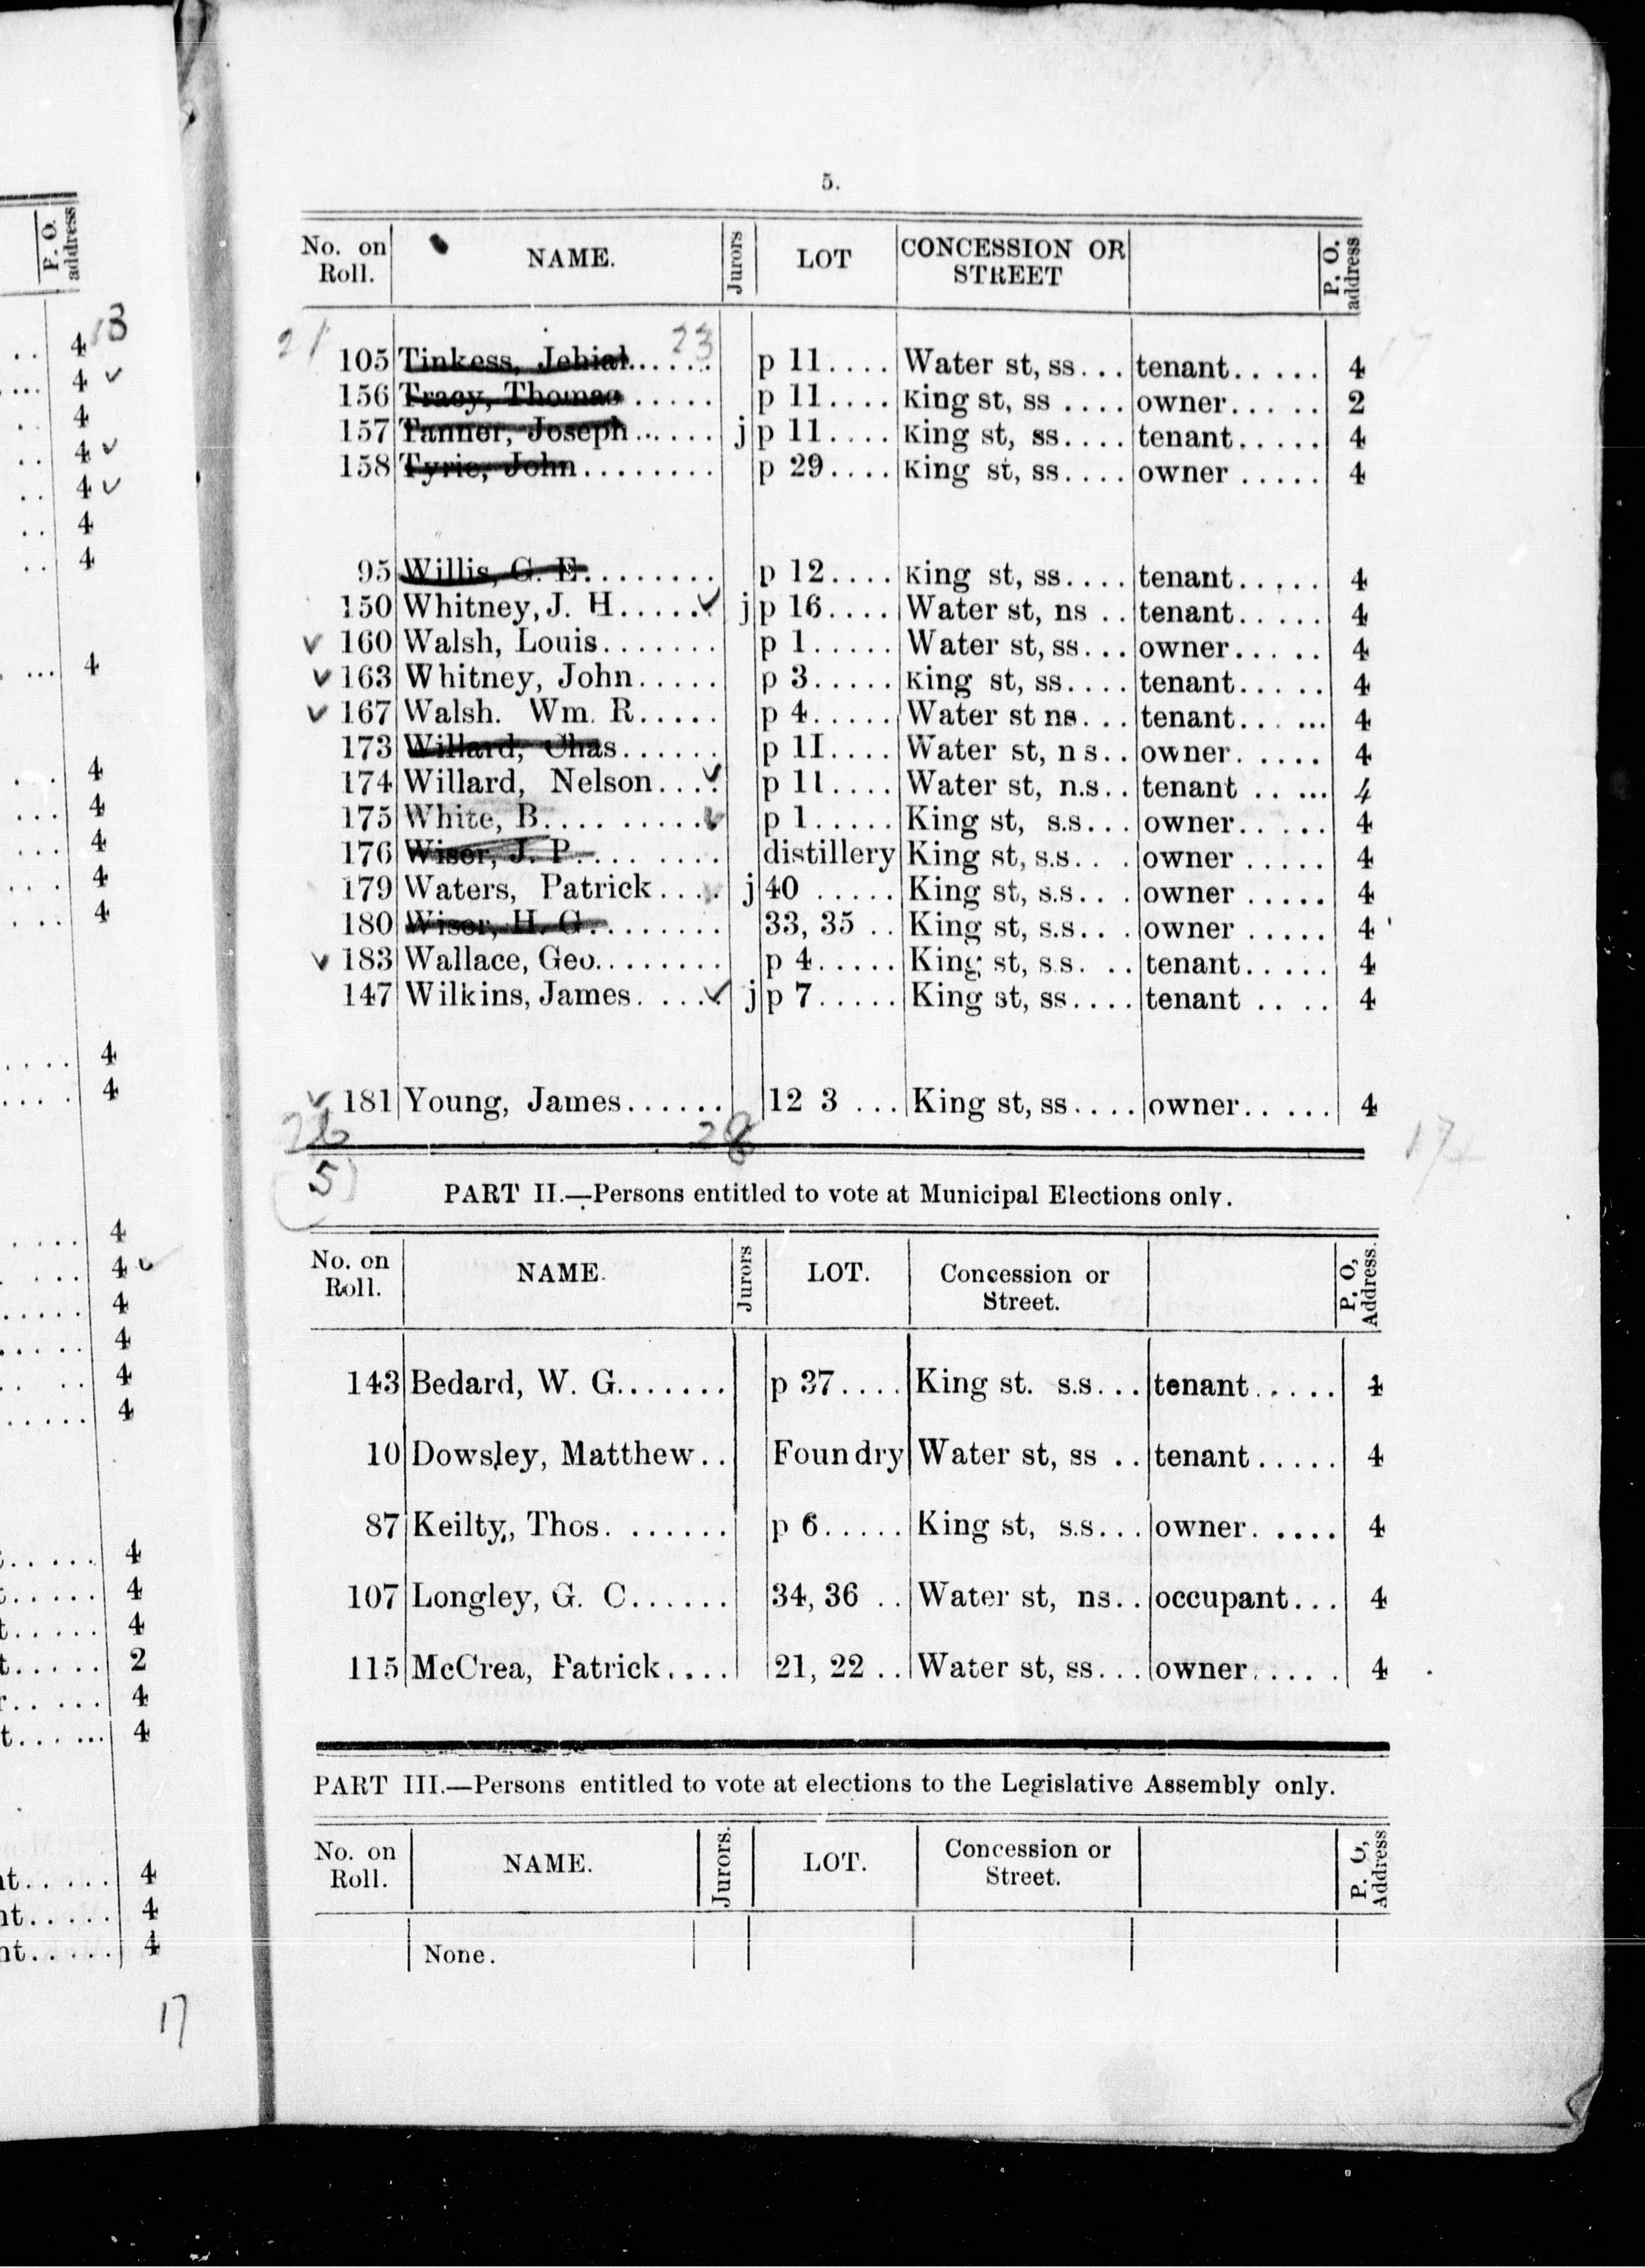 5.
No. on Roll. NAME. Jurors LOT CONCESSION OR STREET P. O. address
21 23
105 Tinkess, Jehial...... p 11.... Water st, ss... tenant..... 4
156 Tracy, Thomas ..... p 11.... King st, ss .... owner..... 2
157 Tanner, Joseph...... j p 11.... King st, ss.... tenant..... 4
158 Tyrie, John........ p 29.... King st, ss.... owner ..... 4
95 Willis, G. E........ p 12.... King st, ss.... tenant..... 4
150 Whitney, J. H.....✓ j p 16.... Water st, ns .. tenant..... 4
✓ 160 Walsh, Louis....... p 1..... Water st, ss... owner..... 4
✓ 163 Whitney, John..... p 3..... King st, ss.... tenant..... 4
✓ 167 Walsh. Wm. R..... p 4..... Water st ns... tenant...... 4
173 Willard, Chas...... p 1I.... Water st, n s.. owner..... 4
174 Willard, Nelson....✓ p 11.... Water st, n.s.. tenant ..... 4
175 White, B..........✓ p 1..... King st, s.s... owner..... 4
176 Wiser, J. P........ distillery King st, s.s... owner ..... 4
179 Waters, Patrick....✓ j 40 ..... King st, s.s... owner ..... 4
180 Wiser, H. G........ 33, 35 .. King st, s.s... owner ..... 4
✓ 183 Wallace, Geo........ p 4..... King st, s.s. .. tenant..... 4
147 Wilkins, James.....✓ j p 7..... King st, ss.... tenant .... 4
✓ 181 Young, James...... 12 3 ... King st, ss.... owner..... 4
26 28 17
5
PART II.—Persons entitled to vote at Municipal Elections only.
No. on Roll. NAME. Jurors LOT. Concession or Street. P. O, Address.
143 Bedard, W. G....... p 37.... King st. s.s... tenant..... 4
10 Dowsley, Matthew.. Foundry Water st, ss .. tenant..... 4
87 Keilty, Thos. ...... p 6..... King st, s.s... owner. .... 4
107 Longley, G. C...... 34, 36 .. Water st, ns.. occupant... 4
115 McCrea, Patrick.... 21, 22 .. Water st, ss... owner..... 4
PART III.—Persons entitled to vote at elections to the Legislative Assembly only.
No. on Roll. NAME. Jurors. LOT. Concession or Street. P. O, Address
None.